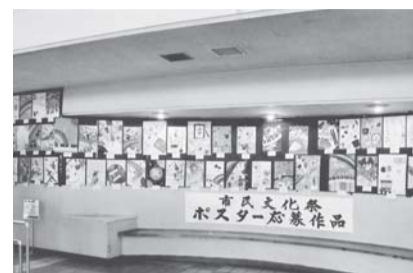 市民文化祭
ポスター応募作品